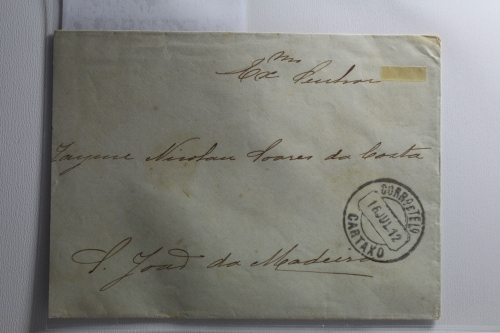 Ex^mo Senhor
Jayme Nicolau Soares da Costa
S. João da Madeira
CORRO E TELO
16 JUL 12
CARTAXO